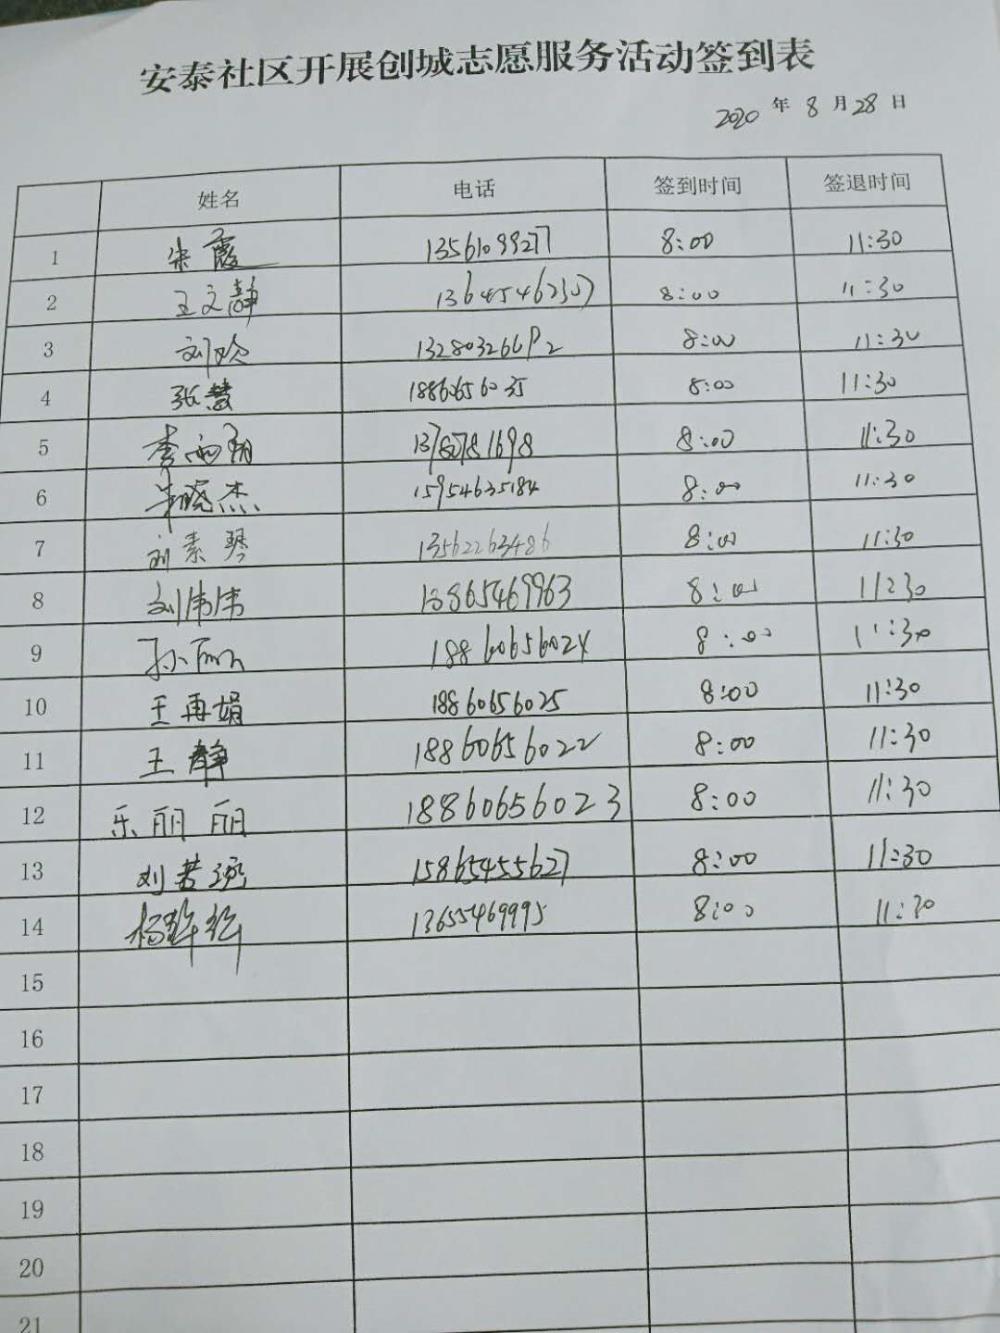 安泰社区开展创城志愿服务活动签到表
2020 年 8 月 28 日
姓名 电话 签到时间 签退时间
1 朱霞 13561099277 8:00 11:30
2 王文静 13645462307 8:00 11:30
3 刘玲 8:00 11:30
4 张慧 18860656035 8:00 11:30
5 李雨翔 8:00 11:30
6 晓杰 15954635184 8:00 11:30
7 刘素琴 13562263486 8:00 11:30
8 刘伟伟 13865469963 8:00 11:30
9 孙丽 18860656024 8:00 11:30
10 王再娟 18860656025 8:00 11:30
11 王静 18860656022 8:00 11:30
12 乐丽丽 18860656023 8:00 11:30
13 刘若 15865455627 8:00 11:30
14 杨 13655469995 8:00 11:30
15
16
17
18
19
20
21